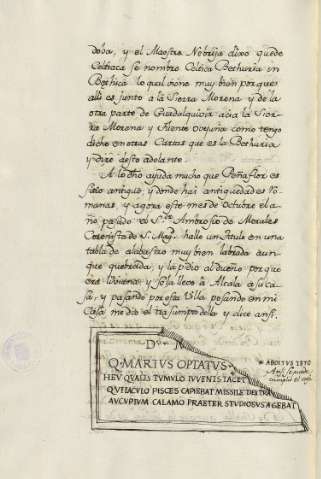 doba, y el Maestre Nebrija dixo que de
Celtiaca se nombre Celtica Bethuria in
Bethica lo qual viene muy bien porque
alli es junto a la Sierra Morena y de la
otra parte de Guadalquivir acia la Sier-
ra Morena y Fuente Ovejuna como tengo
dicho en otras Cartas que es la Bethuria
y diré desto adelante.
A lo dho ayuda mucho que Peñaflor es
sitio antiguo, y donde hai antiguedades Ro-
manas, y agora este mes de Octubre el a-
ño pasado el Sr. Ambrosio de Morales
Coronista de S. Mag. hallo un titulo en una
tabla de alabastro muy bien labrada aun-
que quebrada, y la pidio al dueño porque
era y se la llevo a Alcala a su ca-
sa, y pasando por esta Villa posando en mi
casa me dio el y dice ansi.
D M
Q. MARTVS OPTATVS
HEV QVALIS TVMVLO IVVENIS IACET
QVI IACVLO PISCES CAPIEBAT MISSILE DEXTRA
AVCVPIVM CALAMO PRAETER STVDIOSVS AGEBAT
* ABDITVS